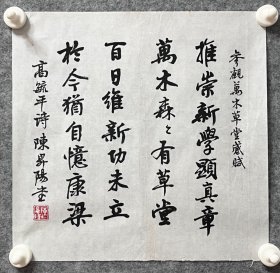 參觀萬木草堂感賦
推崇新學顯真章
萬木森々有草堂
百日維新功未立
於今猶自憶康梁
高毓平詩 陳昇陽書